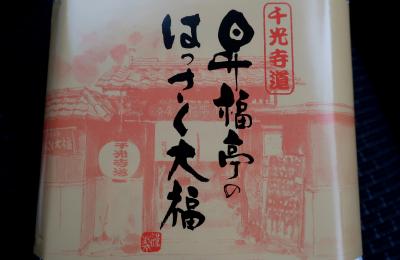 千光寺道
昇福亭の
はっさく大福
千光寺道